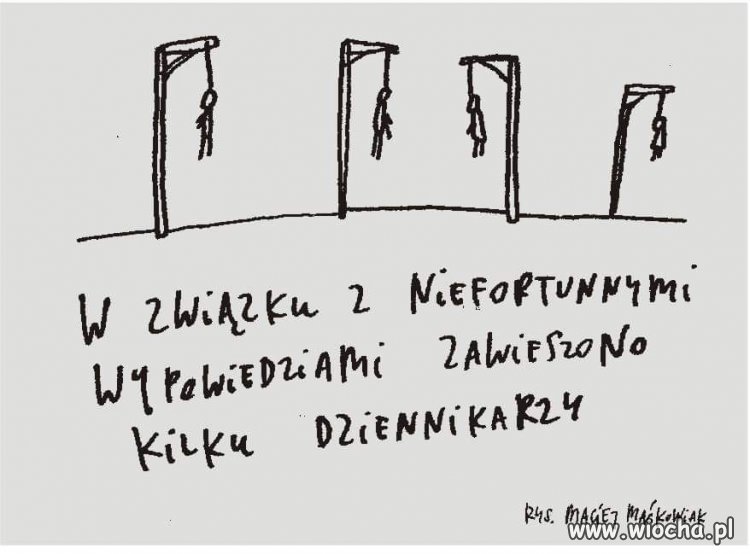 W ZWIĄZKU Z NIEFORTUNNYMI
WYPOWIEDZIAMI ZAWIESZONO
KILKU DZIENNIKARZY
RYS. MACIEJ MAĆKOWIAK
www.wiocha.pl